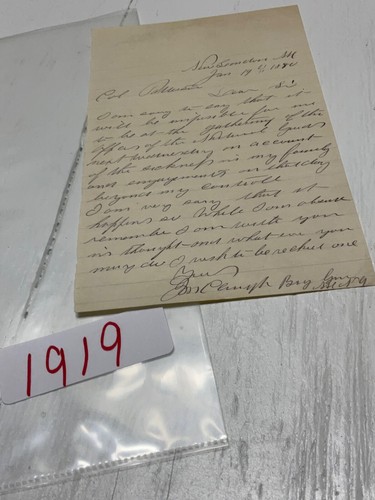 Jan 19th 1894
Col Dear Sir
I am sorry to say that it
will be impossible for me
to be at the gathering of the
officers of the National Guards
next Wednesday on account
of the sickness in my family
and engagements on that day
beyond my controle
I am very sorry that it
happens so. While I am absent
remember I am with you
in thought and what ever you
may do I wish to be reckoned one
Yours
Brig
1919